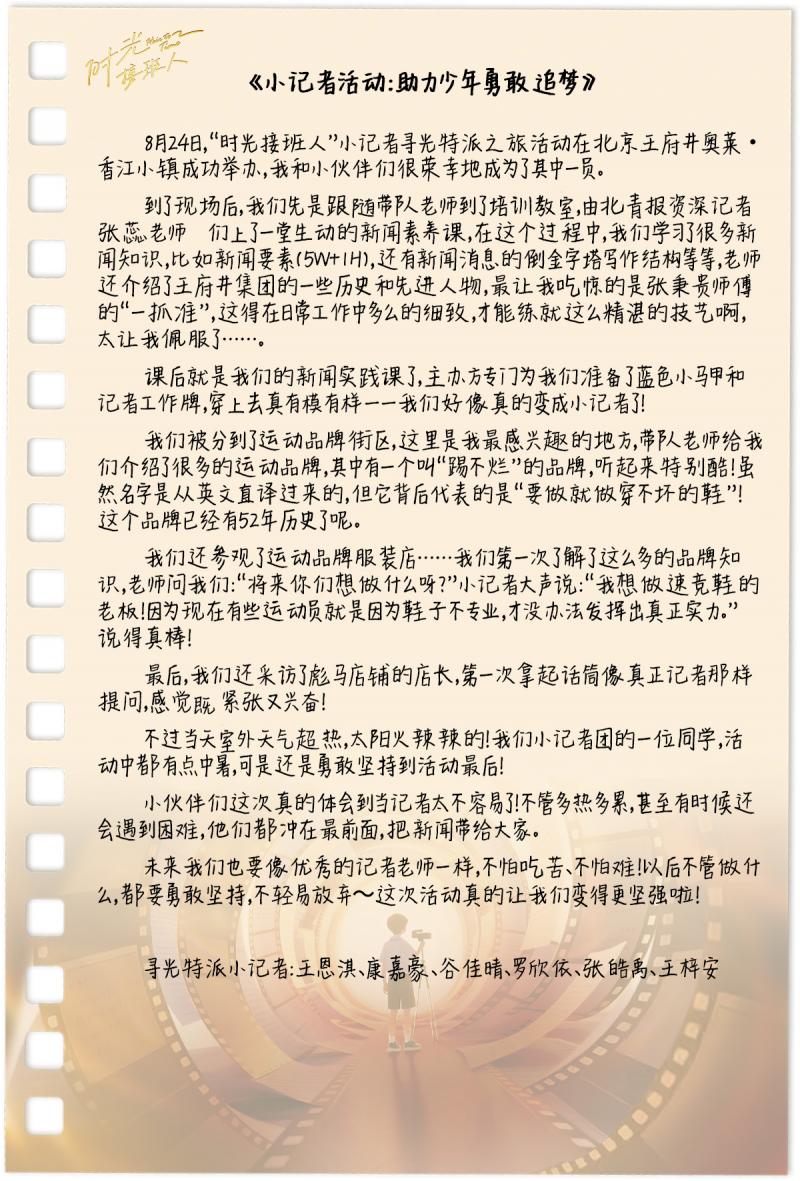 时光
接班人
《小记者活动:助力少年勇敢追梦》
8月24日,“时光接班人”小记者寻光特派之旅活动在北京王府井奥莱·
香江小镇成功举办,我和小伙伴们很荣幸地成为了其中一员。
到了现场后,我们先是跟随带队老师到了培训教室,由北青报资深记者
张蕊老师 们上了一堂生动的新闻素养课,在这个过程中,我们学习了很多新
闻知识,比如新闻要素(5W+1H),还有新闻消息的倒金字塔写作结构等等,老师
还介绍了王府井集团的一些历史和先进人物,最让我吃惊的是张秉贵师傅
的“一抓准”,这得在日常工作中多么的细致,才能练就这么精湛的技艺啊,
太让我佩服了……。
课后就是我们的新闻实践课了,主办方专门为我们准备了蓝色小马甲和
记者工作牌,穿上去真有模有样——我们好像真的变成小记者了!
我们被分到了运动品牌街区,这里是我最感兴趣的地方,带队老师给我
们介绍了很多的运动品牌,其中有一个叫“踢不烂”的品牌,听起来特别酷!虽
然名字是从英文直译过来的,但它背后代表的是“要做就做穿不坏的鞋”!
这个品牌已经有52年历史了呢。
我们还参观了运动品牌服装店……我们第一次了解了这么多的品牌知
识,老师问我们:“将来你们想做什么呀?”小记者大声说:“我想做速竞鞋的
老板!因为现在有些运动员就是因为鞋子不专业,才没办法发挥出真正实力。”
说得真棒!
最后,我们还采访了彪马店铺的店长,第一次拿起话筒像真正记者那样
提问,感觉既紧张又兴奋!
不过当天室外天气超热,太阳火辣辣的!我们小记者团的一位同学,活
动中都有点中暑,可是还是勇敢坚持到活动最后!
小伙伴们这次真的体会到当记者太不容易了!不管多热多累,甚至有时候还
会遇到困难,他们都冲在最前面,把新闻带给大家。
未来我们也要像优秀的记者老师一样,不怕吃苦、不怕难!以后不管做什
么,都要勇敢坚持,不轻易放弃～这次活动真的让我们变得更坚强啦!
寻光特派小记者:王恩淇、康嘉豪、谷佳晴、罗欣依、张皓禹、王梓安